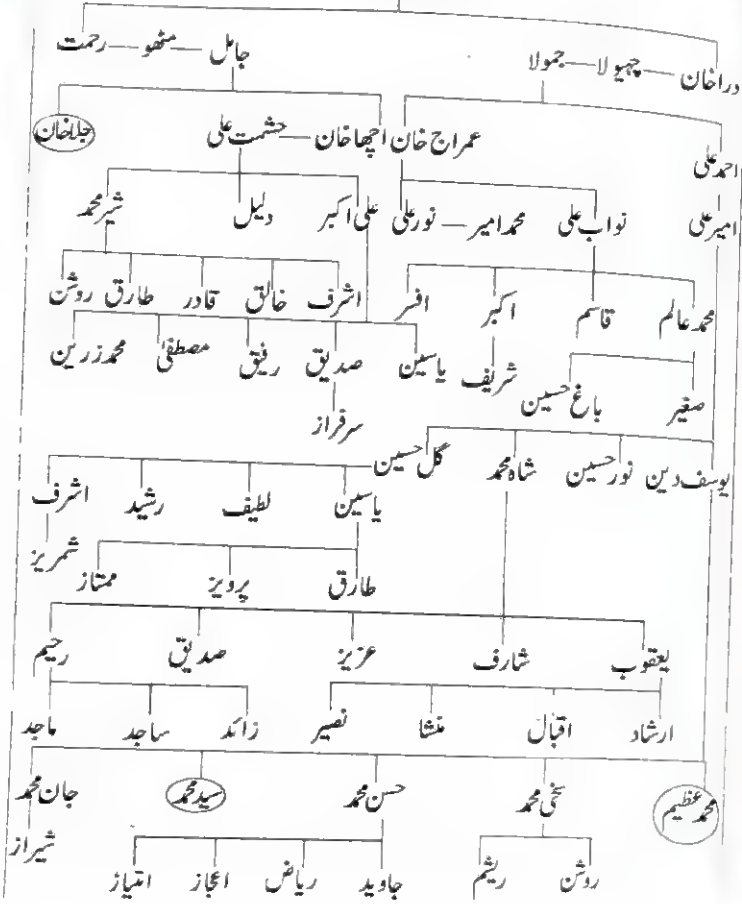 دراخان — چھیولا — جمولا جامل — مٹھو — رحمت
احمد علی عمراج خان اچھا خان — حشمت علی جلا خان
امیر علی نواب علی محمد امیر — نور علی علی اکبر دلیل شیر محمد
محمد عالم قاسم اکبر افسر اشرف خالق قادر طارق روشن
صغیر باغ حسین شریف یاسین صدیق رفیق مصطفیٰ محمد زرین
سرفراز
یوسف دین نور حسین شاہ محمد گل حسین
یاسین لطیف رشید اشرف
طارق پرویز ممتاز شمریز
یعقوب شارف عزیز صدیق رحیم
ارشاد اقبال منشا نصیر زائد ساجد ماجد
محمد عظیم سخی محمد حسن محمد سید محمد جان محمد
روشن ریشم جاوید ریاض اعجاز امتیاز شیراز